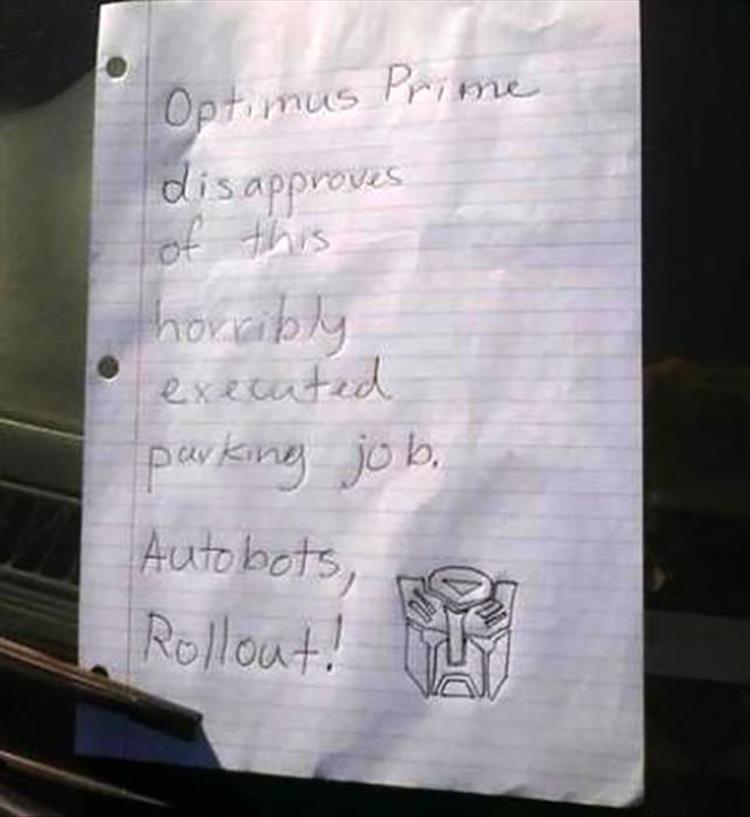 Optimus Prime
disapproves
of this
horribly
executed
parking job.
Autobots,
Rollout!